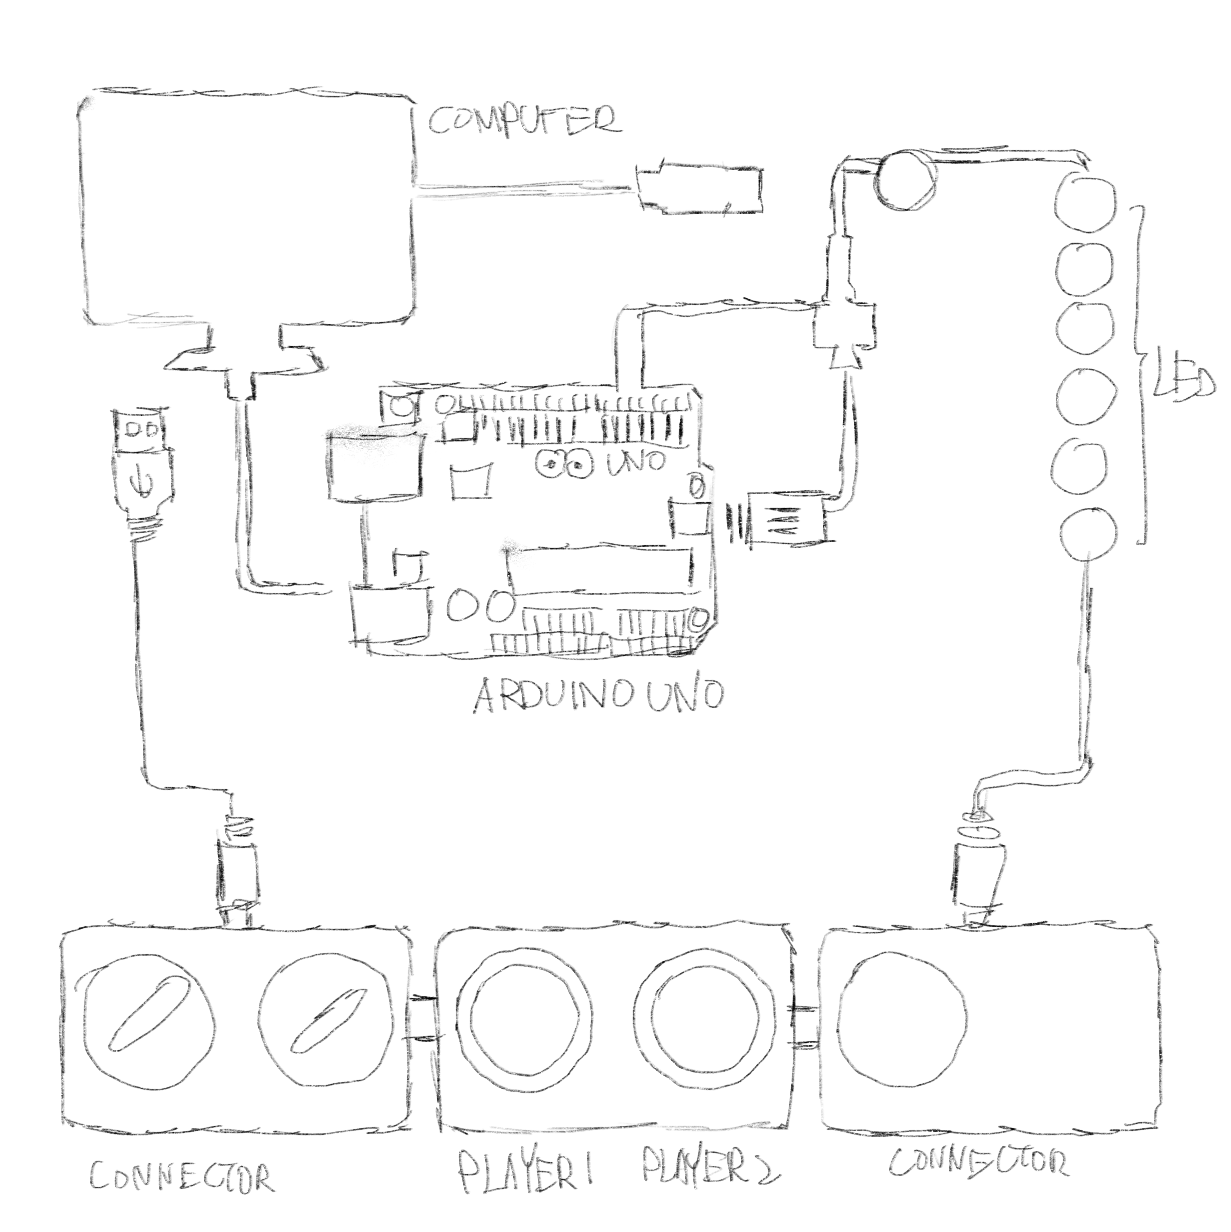 COMPUTER
UNO
LED
ARDUINO UNO
CONNECTOR
PLAYER1
PLAYER2
CONNECTOR